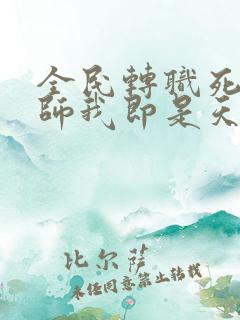 全民轉職死
師我即是天
比尔萨
未经同意禁止转载